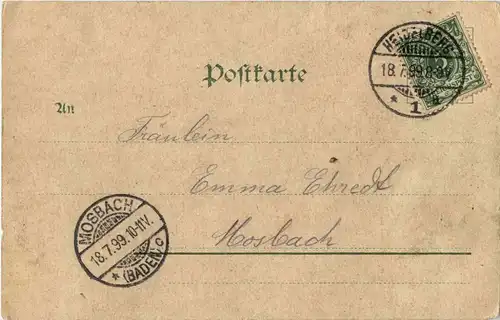 HEIDELBERG
18.7.99.8-9V.
* 1 a
Postkarte
An
Fräulein
Emma Ehredt
Mosbach
MOSBACH
18.7.99.10-11V.
* (BADEN) c